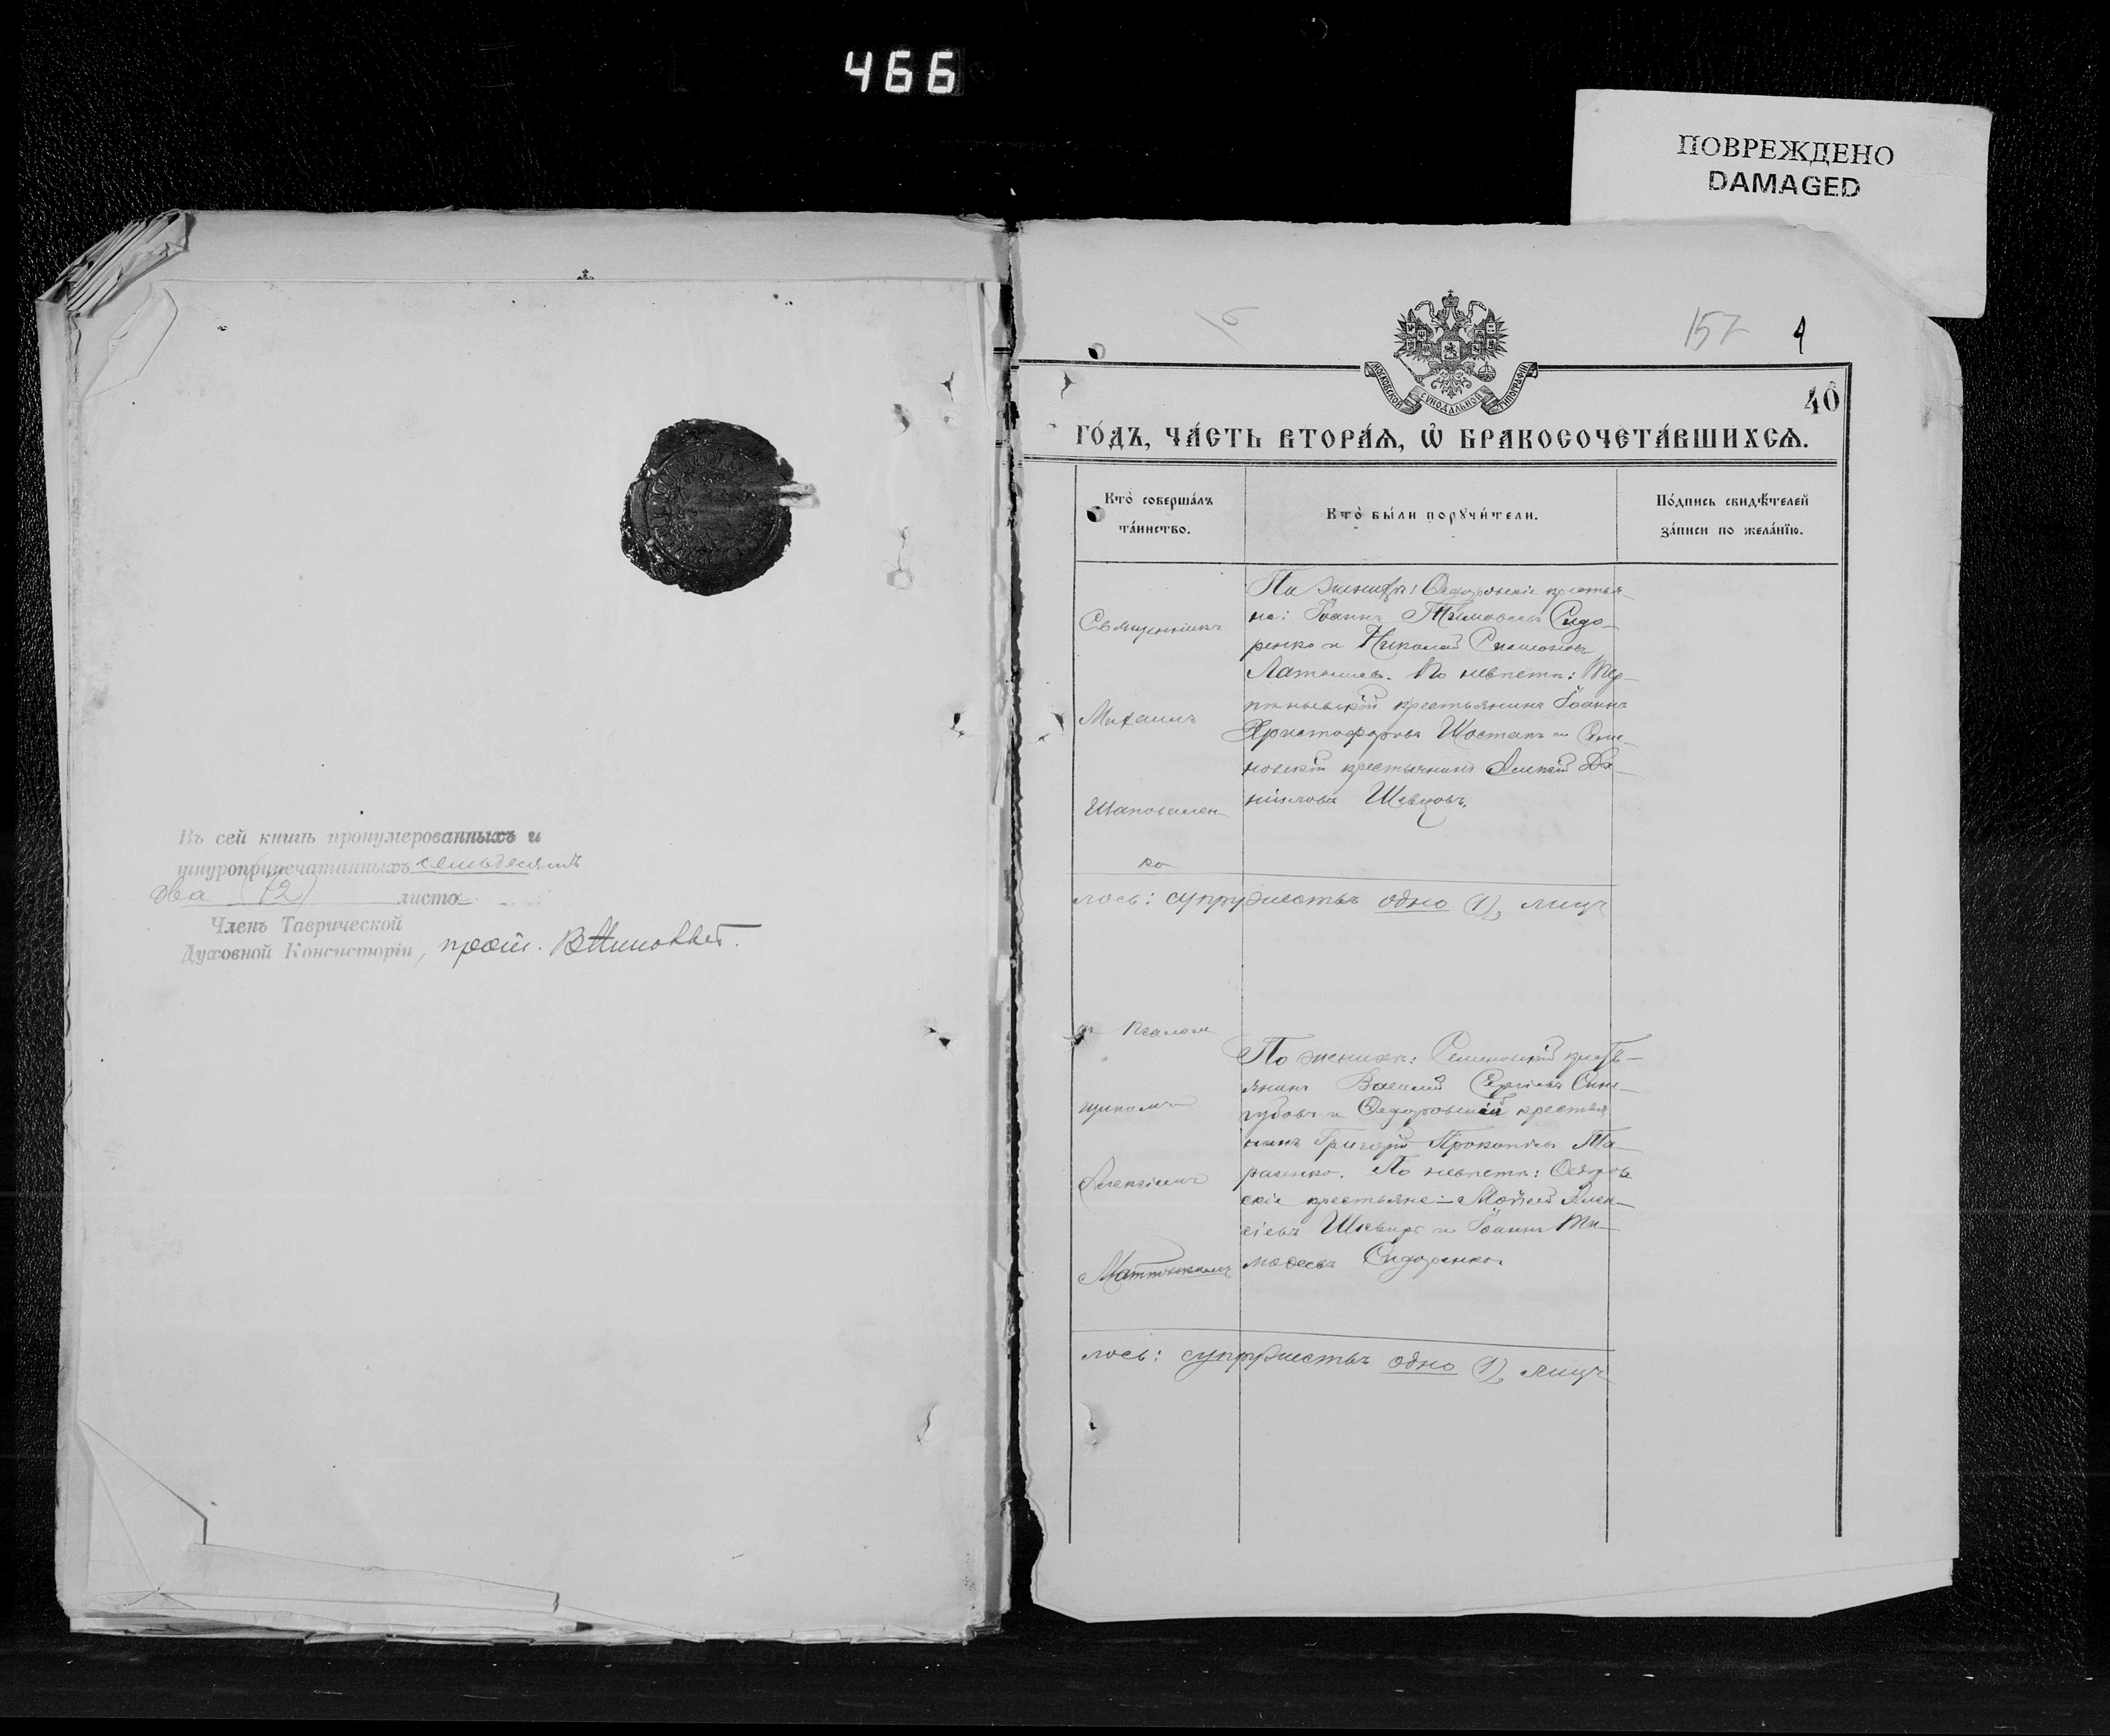 466
ПОВРЕЖДЕНО
DAMAGED
Въ сей книгѣ пронумерованныхъ и
шнуроприпечатанныхъ семьдесятъ
два (72) листа
Членъ Таврической
Духовной Консисторіи, прот.
157 4
МОСКОВСКОЙ СѴНОДАЛЬНОЙ ТИПОГРАФІИ
40
ГО́ДЪ, ЧА́СТЬ ВТОРА́Ѧ, Ѡ҆ БРАКОСОЧЕТА́ВШИХСѦ.
Кто̀ соверша́лъ
та́инство.
Кто̀ бы́ли порꙋчи́тели.
По́дпись свидѣ́телей
за́писи по жела́нїю.
Священникъ
Михаилъ
Шаповален-
ко
По женихѣ: Ѳедоровскіе крестья-
не: Іоаннъ Тимоѳеевъ Сидо-
ренко и Николай Симеоновъ
Латышевъ. По невѣстѣ: Тер-
крестьянинъ Іоаннъ
Христофоровъ Шостакъ и Семе-
новскій крестьянинъ Алексѣй Да-
ниловъ Шевцовъ.
лось: супружествъ одно (1), лицъ
съ псалом
щикомъ
Алексіемъ
По женихѣ: Семеновскій кресть-
янинъ Василій Сергіевъ Сине-
губовъ и Ѳедоровскій крестья
нинъ Григорій Прокопіевъ Та-
расенко. По невѣстѣ: Ѳедоров
скіе крестьяне: Моѵсей Алек-
сіевъ и Іоаннъ Ти-
моѳеевъ Сидоренко.
лось: супружествъ одно (1), лицъ